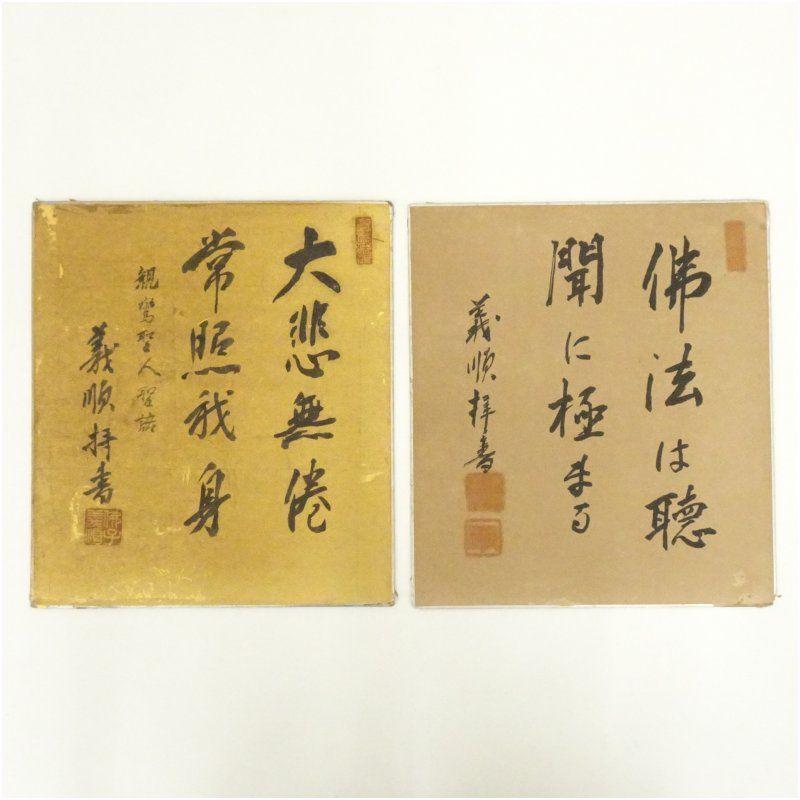 佛法は聴
聞に極まる
義順拝書
大悲無倦
常照我身
親鸞聖人聖語
義順拝書